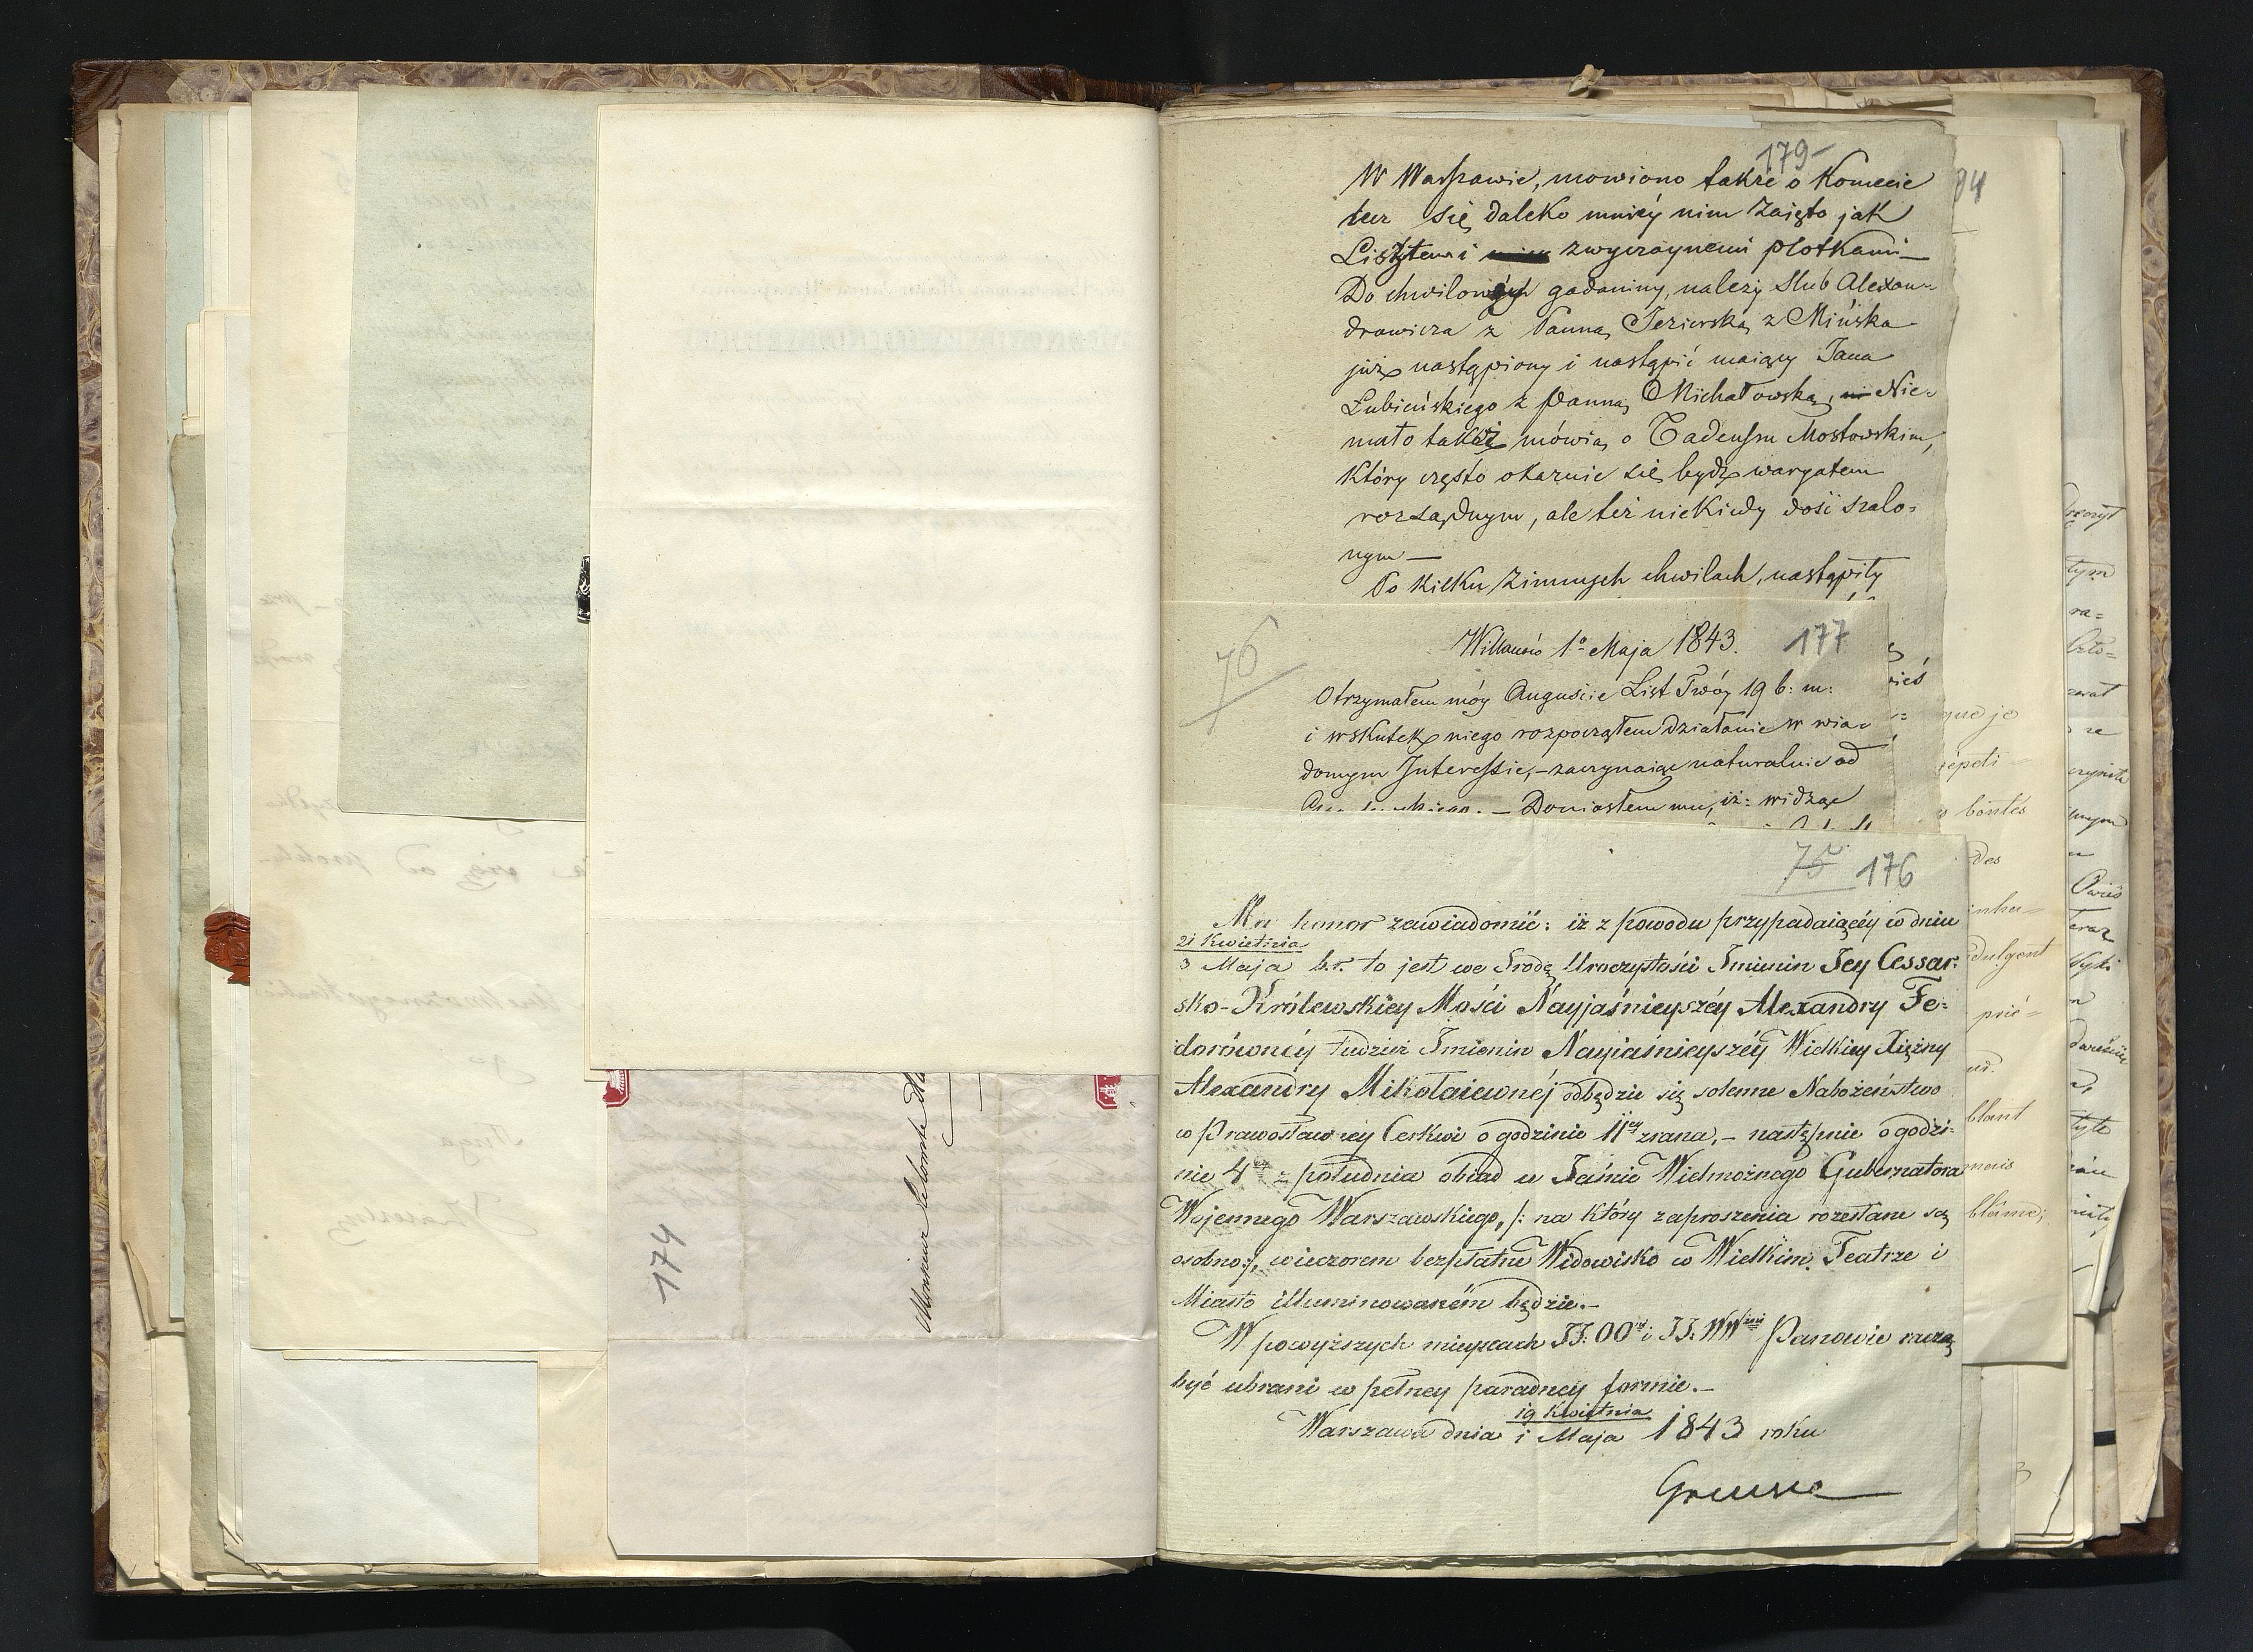 174
Monsieur le Comte
179
W Warszawie, mowiono także o Komecie
lecz się daleko mniéy nim zaięto jak
Lisztem i zwyczaynemi plotkami—
Do chwilowych gadaniny, należy Slub Alexan-
drowicza z Panną Jezierską z Mińska
już nastąpiony i nastąpić maiący Jana
Łubieńskiego z Panną Michałowską, Nie-
mało także mówią o Tadeuszu Mostowskim,
Który często okazuie się bydź waryatem
rozsądnym, ale też niekiedy dość szalo=
nym —
Po kilku zimnych chwilach, nastąpiły
76
Willanów 1º Maja 1843. 177
Otrzymałem móy Auguście List Twóy 19 b: m:
i wskutek niego rozpocząłem działanie w wia-
domym Interessie,—zaczynaiąc naturalnie od
— Doniosłem mu, iż: widząc
75 176
Mam honor zawiadomić: iż z powodu przypadaiącéy w dniu
21 Kwietnia
3 Maja b.r. to jest we Srodę Uroczystości Imienin Jey Cessar:
sko-Królewskiey Mości Nayjaśnieyszéy Alexandry Fe=
dorównéy tudzież Imienin Nayiaśnieyszéy Wielkiey Xiężny
Alexandry Mikołaiewnéj odbędzie się solenne Nabożeństwo
w Prawosławney Cerkwi o godzinie 11ey zrana,— następnie o godzi-
nie 4ey z południa obiad u Jaśnie Wielmożnego Gubernatora
Wojennego Warszawskiego, /: na który zaproszenia rozesłane są
osobno:/, wieczorem bezpłatne Widowisko w Wielkim Teatrze i
Miasto illuminowaném będzie.—
W powyższych mieyscach JJ: OO i JJ: WW Panowie raczą
być ubrani w pełney paradney formie.—
19 Kwietnia
Warszawa dnia 1 Maja 1843 roku
bontés
des
dulgent
blant
blâme;